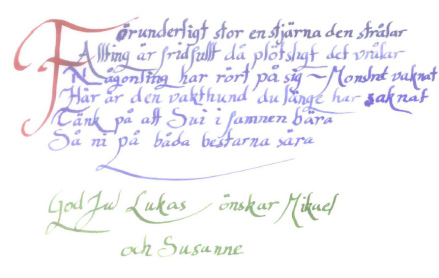 Förunderligt stor en stjärna den strålar
Allting är fridfullt då plötsligt det vrålar
Någonting har rört på sig ~ Monstret vaknat
Här är den vakthund du länge har saknat
Tänk på att Sui i famnen bära
Så ni på båda bestarna sära
God Jul Lukas önskar Mikael
och Susanne